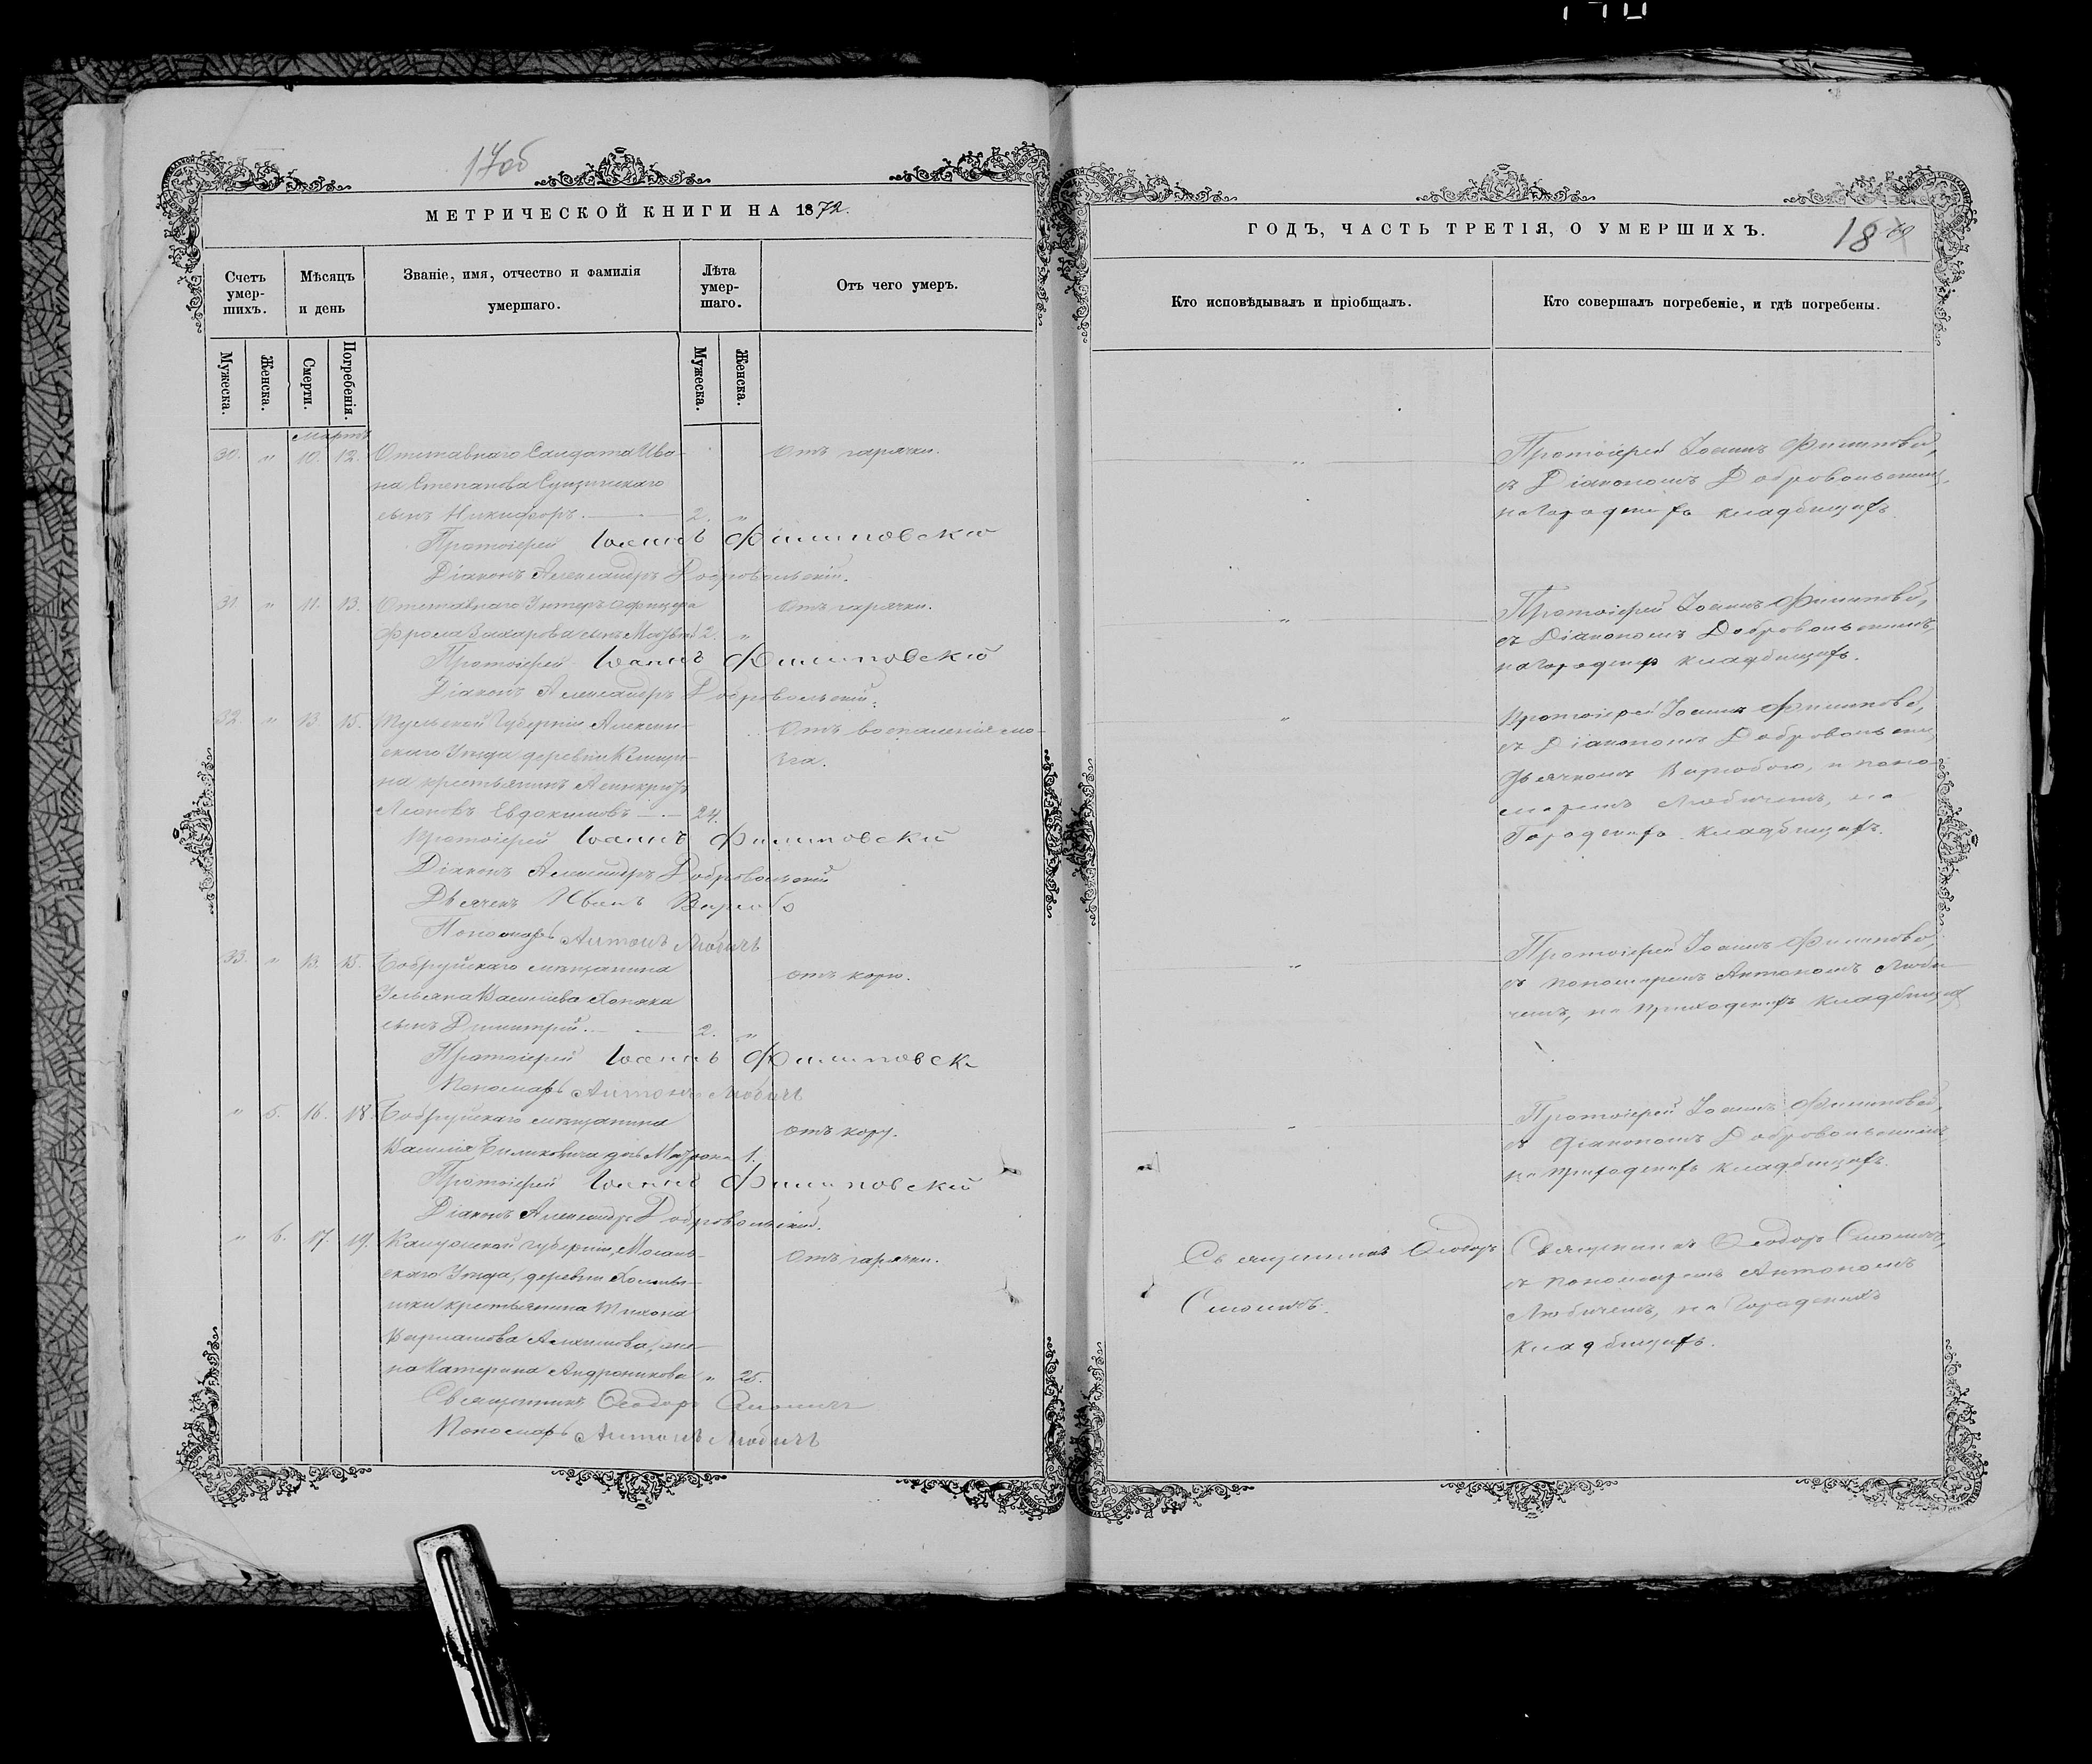 17об
МЕТРИЧЕСКОЙ КНИГИ НА 1872.
Счетъ умер-шихъ.
Мѣсяцъ и день
Званіе, имя, отчество и фамилія умершаго.
Лѣта умер-шаго.
Отъ чего умеръ.
Мужеска.
Женска.
Смерти.
Погребенія.
Мужеска.
Женска.
Мартъ
30. " 10. 12. Отставнаго Солдата Ива- Отъ горячки.
на Степанова
сынъ Никифоръ. 2. "
Протоіерей Іоаннъ Филиповскій
Діаконъ Александръ Добровольскій.
31. " 11. 13. Отставнаго Унтеръ Офицера Отъ горячки.
Фрола Захарова сынъ Матвѣй 2. "
Протоіерей Іоаннъ Филиповскій
Діаконъ Александръ Добровольскій.
32. " 13. 15. Тульской Губерніи Алексин- Отъ воспаленія мо-
скаго Уѣзда деревни зга.
на крестьянинъ
Леоновъ Евдокимовъ 24.
Протоіерей Іоаннъ Филиповскій
Діаконъ Александръ Добровольскій
Дьячекъ Иванъ
Пономарь Антонъ Любичъ
33. " 13. 15. Бобруйскаго мѣщанина Отъ кори.
Ульяна Василіева Хоняка
сынъ Димитрій. 2. "
Протоіерей Іоаннъ Филиповск
Пономарь Антонъ Любичъ
" 5. 16. 18. Бобруйскаго мѣщанина Отъ кору.
Василія дочь Матрона 1.
Протоіерей Іоаннъ Филиповскій
Діаконъ Александръ Добровольскій.
" 6. 17. 19. Калужской губерніи, Мосаль- Отъ горячки.
скаго Уѣзда, деревни
крестьянина Тихона
же-
на Катерина Андроникова " 25.
Священникъ Ѳеодоръ Смоличъ
Пономарь Антонъ Любичъ
ГОДЪ, ЧАСТЬ ТРЕТІЯ, О УМЕРШИХЪ.
18
Кто исповѣдывалъ и пріобщалъ.
Кто совершалъ погребеніе, и гдѣ погребены.
" Протоіерей Іоаннъ Филиповскій,
съ Діакономъ Добровольскимъ,
на Городскомъ кладбищѣ.
" Протоіерей Іоаннъ Филиповскій,
съ Діакономъ Добровольскимъ,
на Городскомъ кладбищѣ.
" Протоіерей Іоаннъ Филиповскій,
съ Діакономъ Добровольскимъ,
Дьячкомъ и поно-
маремъ Любичемъ, на
Городскомъ кладбищѣ.
" Протоіерей Іоаннъ Филиповскій,
съ пономаремъ Антономъ Люби-
чемъ, на приходскомъ кладбищѣ
" Протоіерей Іоаннъ Филиповскій,
съ Діакономъ Добровольскимъ
на приходскомъ кладбищѣ.
Священникъ Ѳеодоръ Священникъ Ѳеодоръ Смоличъ,
Смоличъ. съ пономаремъ Антономъ
Любичемъ, на Городскомъ
кладбищѣ.